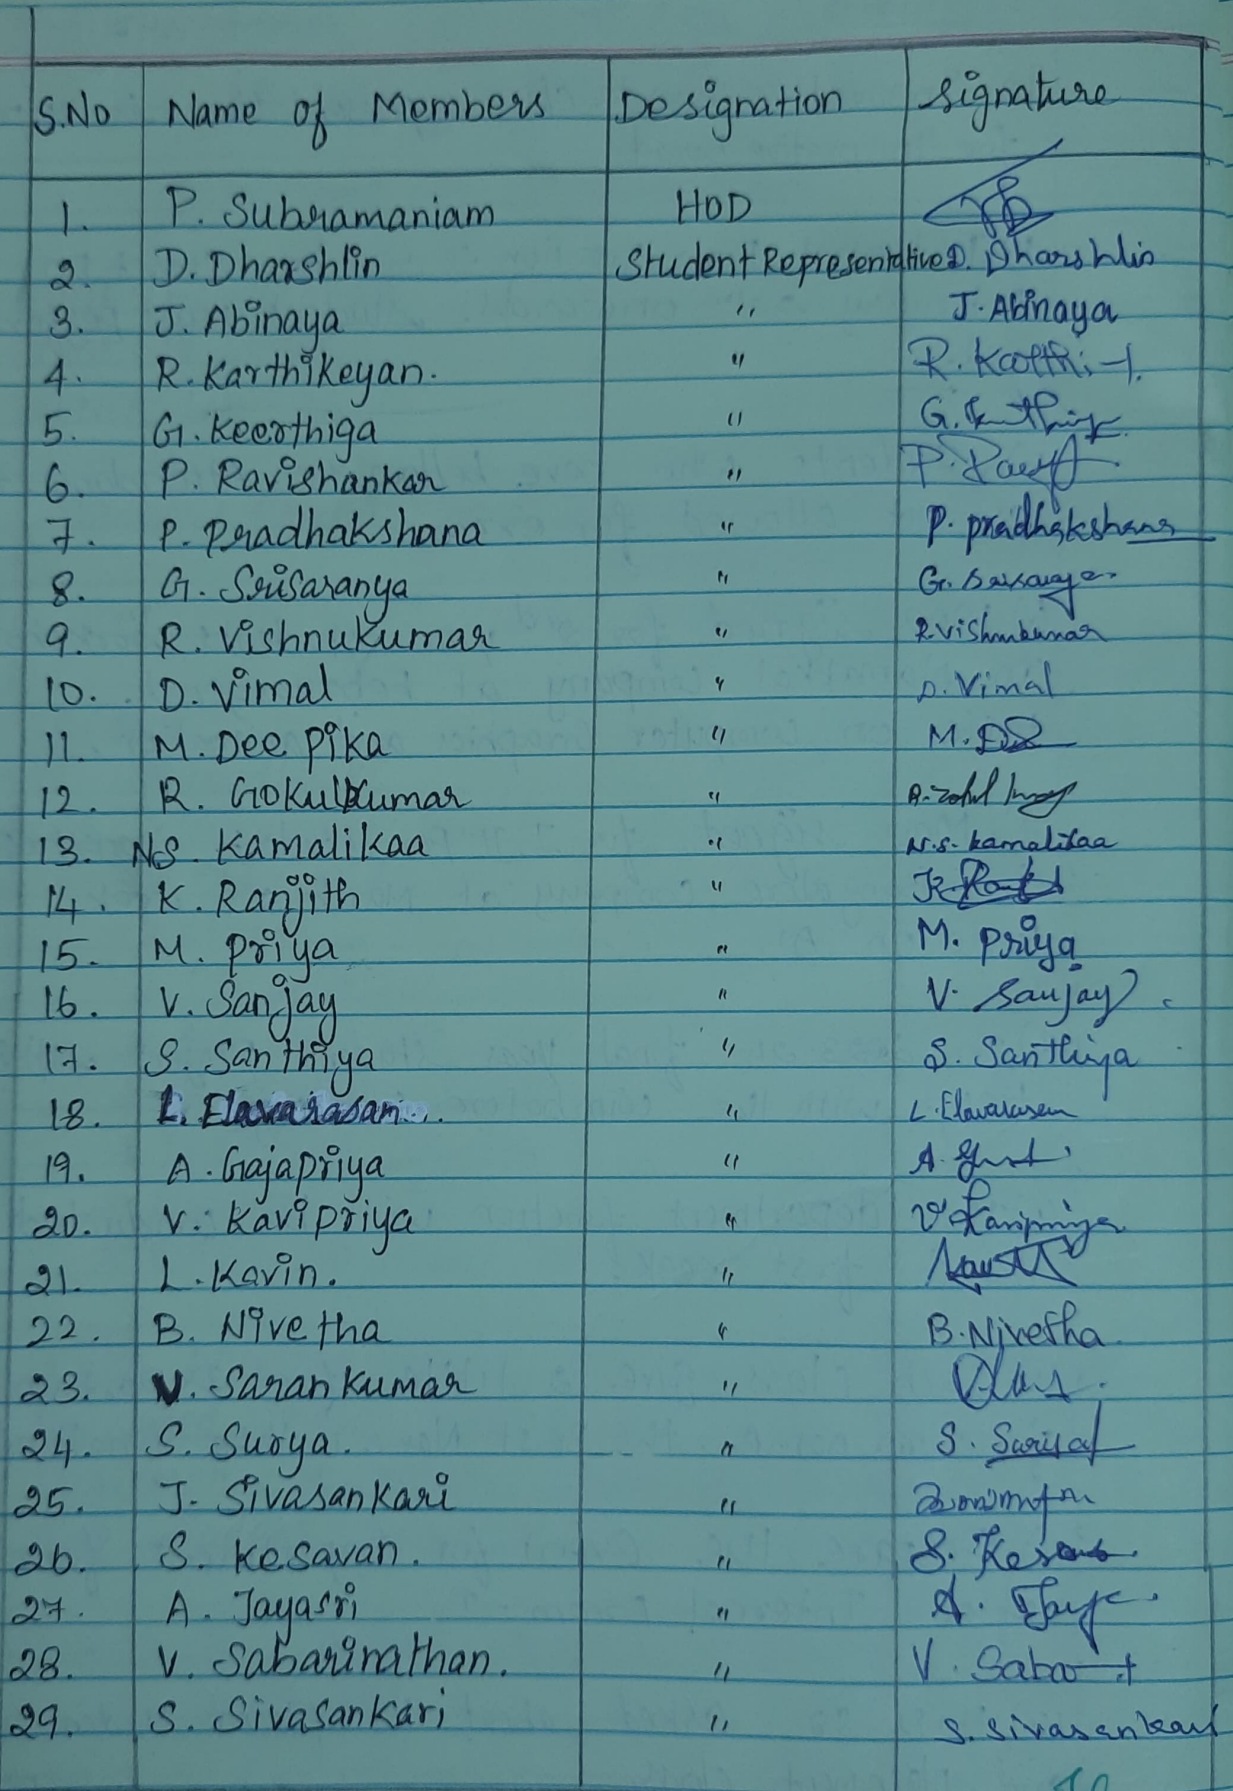 S.No Name of Members Designation Signature
1. P. Subramaniam HOD
2. D. Dharshlin Student Representative D. Dharshlin
3. J. Abinaya " J. Abinaya
4. R. Karthikeyan. " R.
5. G. Keerthiga " G.
6. P. Ravishankar " P.
7. P. Pradhakshana " P. pradhakshana
8. G. Srisaranya " G.
9. R. Vishnukumar " R. Vishnukumar
10. D. Vimal " D. Vimal
11. M. Deepika " M.
12. R. Gokulkumar "
13. N.S. Kamalikaa " N.S. Kamalikaa
14. K. Ranjith " K.
15. M. Priya " M. Priya
16. V. Sanjay " V. Sanjay
17. S. Santhiya " S. Santhiya
18. L. Elavarasan... " L. Elavarasan
19. A. Gajapriya " A.
20. V. Kavipriya " V. Kavipriya
21. L. Kavin. "
22. B. Nivetha " B. Nivetha
23. V. Sarankumar "
24. S. Surya. " S.
25. J. Sivasankari "
26. S. Kesavan. " S.
27. A. Jayasri " A.
28. V. Sabarinathan. " V.
29. S. Sivasankari " S. Sivasankari